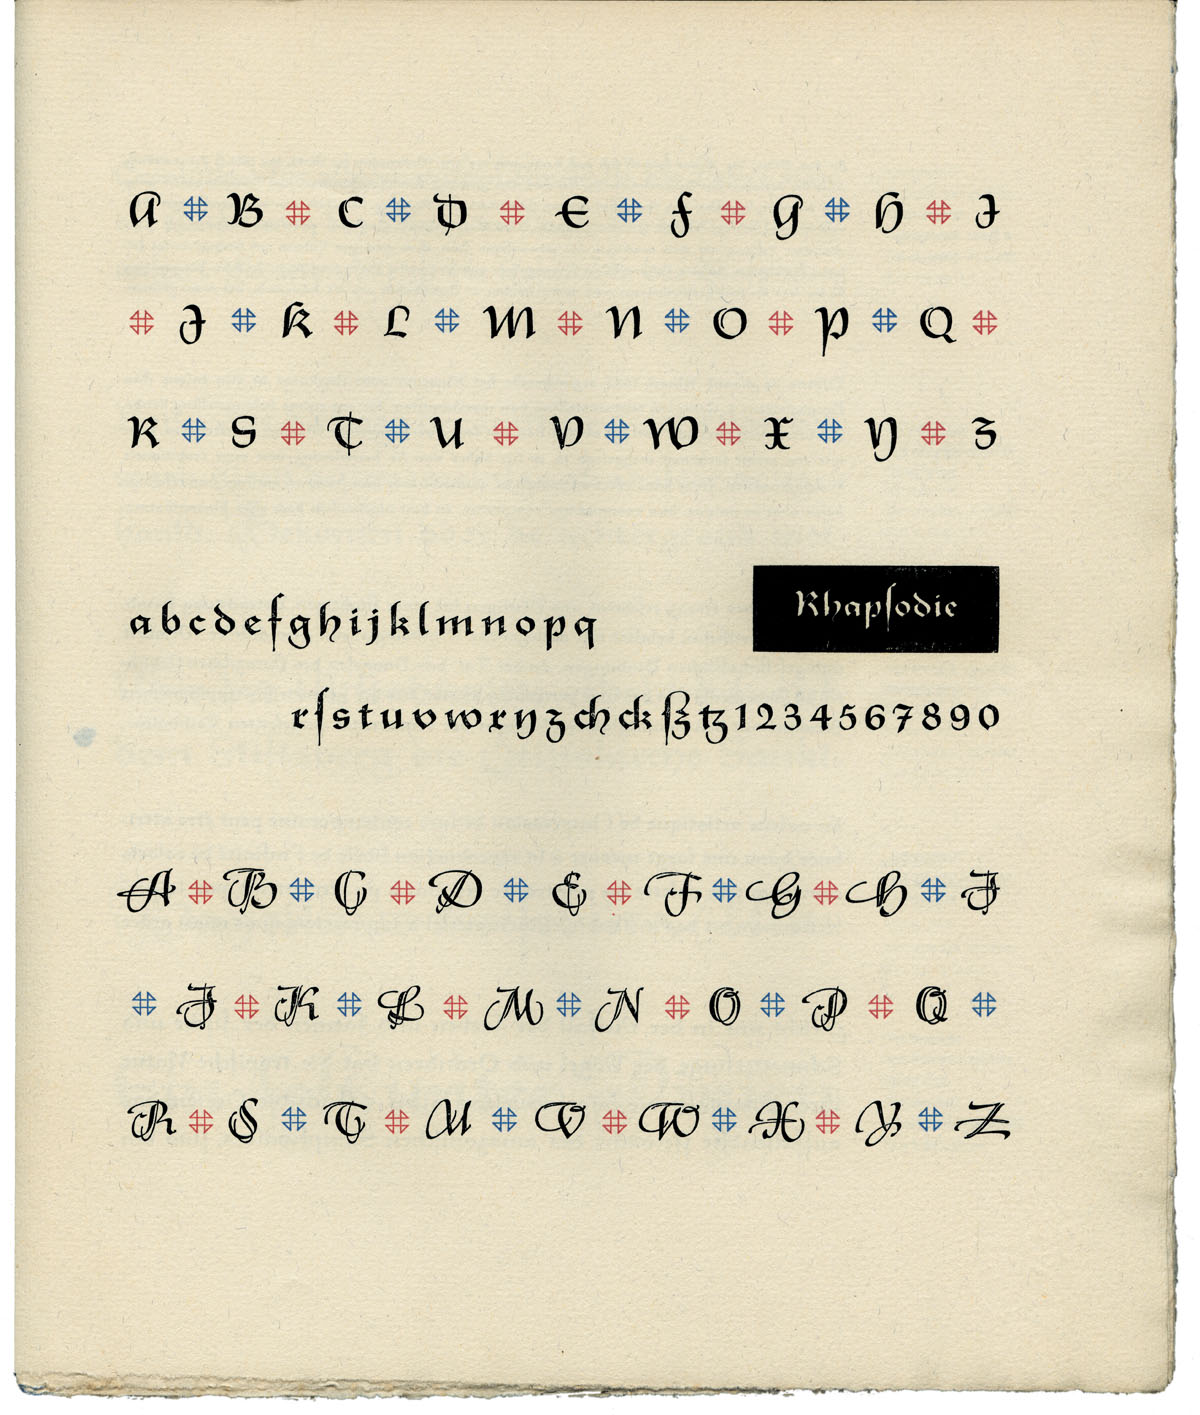 A B C D E F G H I
J K L M N O P Q
R S T U V W X Y Z
abcdefghijklmnopq
Rhapſodie
rſstuvwxyzchckßtz1234567890
A B C D E F G H I
J K L M N O P Q
R S T U V W X Y Z